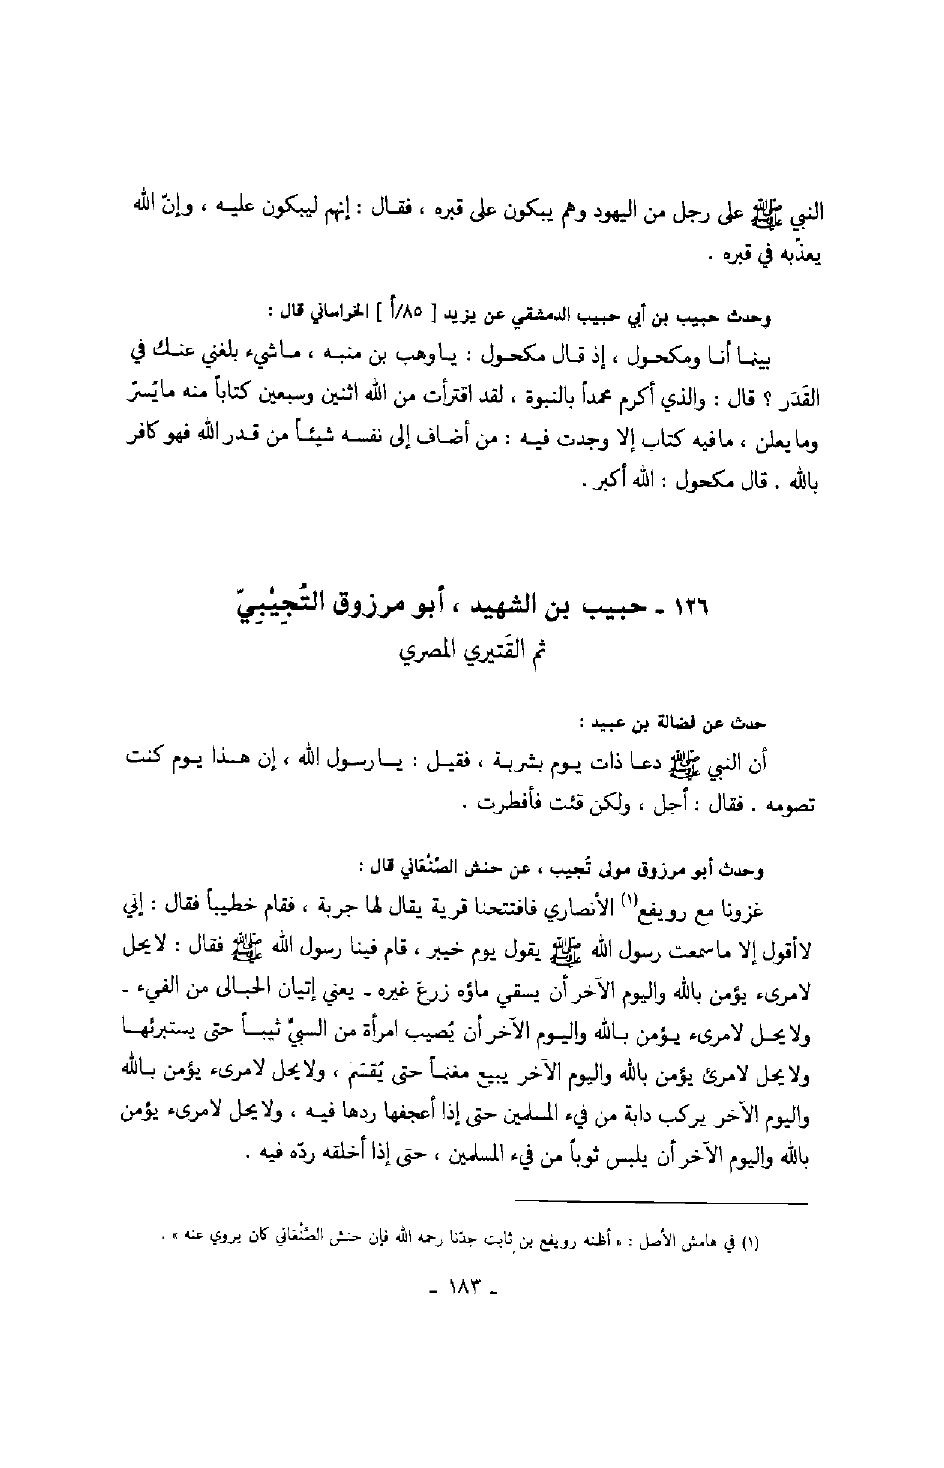 النبي ﷺ على رجل من اليهود وهم يبكون على قبره ، فقال : إنهم ليبكون عليه ، وإنّ الله
يعذّبه في قبره .
وحدث حبيب بن أبي حبيب الدمشقي عن يزيد [ ٨٥/أ ] الخراساني قال :
بينما أنا ومكحول ، إذ قال مكحول : ياوهب بن منبه ، ماشيء بلغني عنك في
القَدَر ؟ قال : والذي أكرم محمداً بالنبوة ، لقد اقترأت من الله اثنين وسبعين كتاباً منه مايُسرّ
ومايعلن ، مافيه كتاب إلا وجدت فيه : من أضاف إلى نفسه شيئاً من قدر الله فهو كافر
بالله . قال مكحول : الله أكبر .
١٢٦ - حبيب بن الشهيد ، أبو مرزوق التُجِيْبِيّ
ثم القَتيري المصري
حدث عن فضالة بن عبيد :
أن النبي ﷺ دعا ذات يوم بشربة ، فقيل : يارسول الله ، إن هذا يوم كنت
تصومه . فقال : أجل ، ولكن قئت فأفطرت .
وحدث أبو مرزوق مولى تُجيب ، عن حنش الصَّنْعَاني قال :
غزونا مع رويفع(١) الأنصاري فافتتحنا قرية يقال لها جربة ، فقام خطيباً فقال : إني
لاأقول إلا ماسمعت رسول الله ﷺ يقول يوم خيبر ، قام فينا رسول الله ﷺ فقال : لايحل
لامرىء يؤمن بالله واليوم الآخر أن يسقي ماؤه زرعَ غيره - يعني إتيان الحبالى من الفيء -
ولايحل لامرىء يؤمن بالله واليوم الآخر أن يُصيب امرأة من السبيّ ثيباً حتى يستبرئها
ولايحل لامرئ يؤمن بالله واليوم الآخر يبيع مغنماً حتى يُقسَم ، ولايحل لامرىء يؤمن بالله
واليوم الآخر يركب دابة من فيء المسلمين حتى إذا أعجفها ردها فيه ، ولايحل لامرىء يؤمن
بالله واليوم الآخر أن يلبس ثوباً من فيء المسلمين ، حتى إذا أخلقه ردّه فيه .
(١) في هامش الأصل : « أظنه رويفع بن ثابت جدّنا رحمه الله فإن حنش الصَّنْعَاني كان يروي عنه » .
- ١٨٣ -